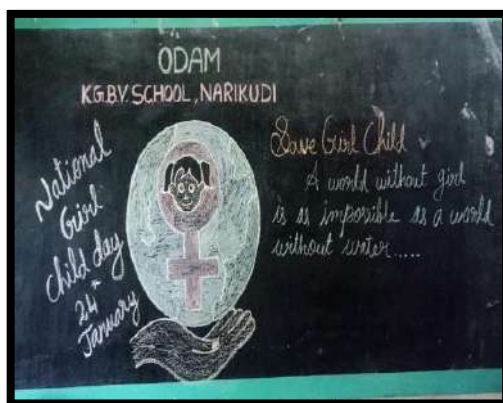 ODAM
K.G.B.V. SCHOOL, NARIKUDI
National
Girl
Child day
24
January
Save Girl Child
A world without girl
is as impossible as a world
without water.....